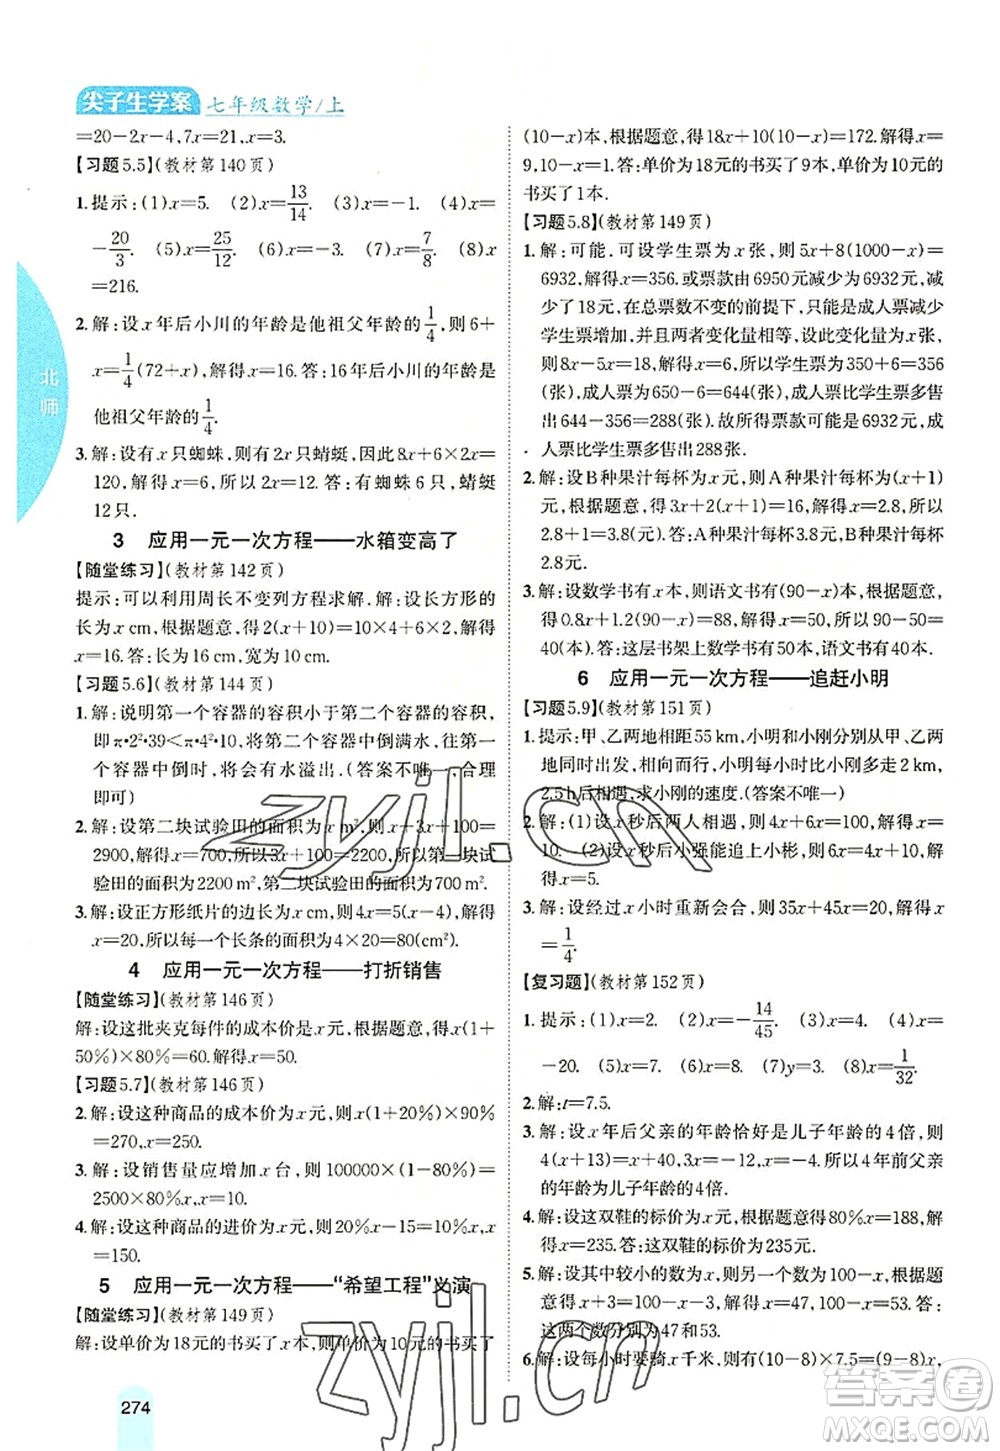 尖子生学案 七年级数学/上
=20-2x-4,7x=21,x=3.
【习题5.5】(教材第140页)
1.提示:(1)x=5. (2)x=13/14. (3)x=-1. (4)x=
-20/3. (5)x=25/12. (6)x=-3. (7)x=7/8. (8)x
=216.
2.解:设x年后小川的年龄是他祖父年龄的1/4,则6+
x=1/4(72+x),解得x=16.答:16年后小川的年龄是
他祖父年龄的1/4.
3.解:设有x只蜘蛛,则有2x只蜻蜓,则8x+6×2x=
120,解得x=6,所以2x=12.答:有蜘蛛6只,蜻蜓
12只.
3 应用一元一次方程——水箱变高了
【随堂练习】(教材第142页)
提示:可以利用周长不变列方程求解.解:设长方形的
长为x cm,根据题意,得2(x+10)=10×4+6×2,解得
x=16.答:长为16 cm,宽为10 cm.
【习题5.6】(教材第144页)
1.解:说明第一个容器的容积小于第二个容器的容积,
即π•2²•39<π•4²•10,将第二个容器中倒满水,往第
一个容器中倒时,将会有水溢出.(答案不唯一,合理
即可)
2.解:设第二块试验田的面积为x m²,则x+3x+100=
2900,解得x=700,所以3x+100=2200.答:第一块试
验田的面积为2200 m²,第二块试验田的面积为700 m².
3.解:设正方形纸片的边长为x cm,则4x=5(x-4),解得
x=20,所以每一个长条的面积为4×20=80(cm²).
4 应用一元一次方程——打折销售
【随堂练习】(教材第146页)
解:设这批夹克每件的成本价是x元,根据题意,得x(1+
50%)×80%=60.解得x=50.
【习题5.7】(教材第146页)
2.解:设这种商品的成本价为x元,则x(1+20%)×90%
=270,x=250.
3.解:设销售量应增加x台,则100000×(x+10)=
2500×80%,x=10.
4.解:设这种商品的进价为x元,则20%x-15=10%x,x
=150.
5 应用一元一次方程——“希望工程”义演
【随堂练习】(教材第149页)
解:设单价为18元的书买了x本,则单价为10元的书买了
274
(10-x)本,根据题意,得18x+10(10-x)=172.解得x=
9,10-x=1.答:单价为18元的书买了9本,单价为10元
的书买了1本.
【习题5.8】(教材第149页)
1.解:可能.可设学生票为x张,则5x+8(1000-x)=
6932,解得x=356.或票款由6950元减少为6932元,减
少了18元,在总票数不变的前提下,只能是成人票减少
学生票增加,并且两者变化量相等,设变化为x张,
则8x-5x=18,解得x=6,所以学生票为350+6=356
(张),成人票为650-6=644(张),成人票比学生票多售
出644-356=288(张).答:所得票款可能为6932元,成
人票比学生票多售出288张.
2.解:设B种果汁每杯为x元,则A种果汁每杯为(x+1)
元,根据题意,得3x+2(x+1)=16,解得x=2.8,x+1=
2.8+1=3.8.答:A种果汁每杯3.8元,B种果汁每杯
2.8元.
3.解:设数学书有x本,则语文书有(90-x)本,根据题意,
得0.8x+1.2(90-x)=88,解得x=50,则90-50=
40(本).答:这层书架上数学书有50本,语文书有40本.
6 应用一元一次方程——追赶小明
【习题5.9】(教材第151页)
1.提示:甲、乙两地相距55 km,小明和小刚分别从甲、乙两
地同时出发相向而行,小明每小时比小刚多走2 km,
2.5 h后相遇,求小刚的速度.(答案不唯一)
2.解:(1)设x秒后两人相遇,则4x+6x=100,解得x=
10. (2)设x秒后小强能追上小彬,则6x=4x+10,解
得x=5.
3.解:设经过x小时重新会合,则35x+45x=20,解得x
=1/4.
【复习题】(教材第152页)
1.提示:(1)x=2. (2)x=-14/45. (3)x=4. (4)x=
-20. (5)x=5. (6)x=1. (7)y=3. (8)x=1/32.
2.解:t=7.5.
3.解:设x年后父亲的年龄恰好是儿子年龄的4倍,则
4(x+13)=x+40,解得x=-4.所以4年前父亲
的年龄为儿子年龄的4倍.
4.解:设这双鞋的标价为x元,根据题意,得80%x=188,解
得x=235.答:这双鞋的标价为235元.
5.解:设其中较小的数为x,则x+x+6=100,解得x=47,x+6=53.答:
这两个数分别为47和53.
6.解:设每小时要骑x千米,则(10-8)×7.5=(9-8)x,
zyjl.cn
zyjl.cn
北师
答案圈
MXQE.COM